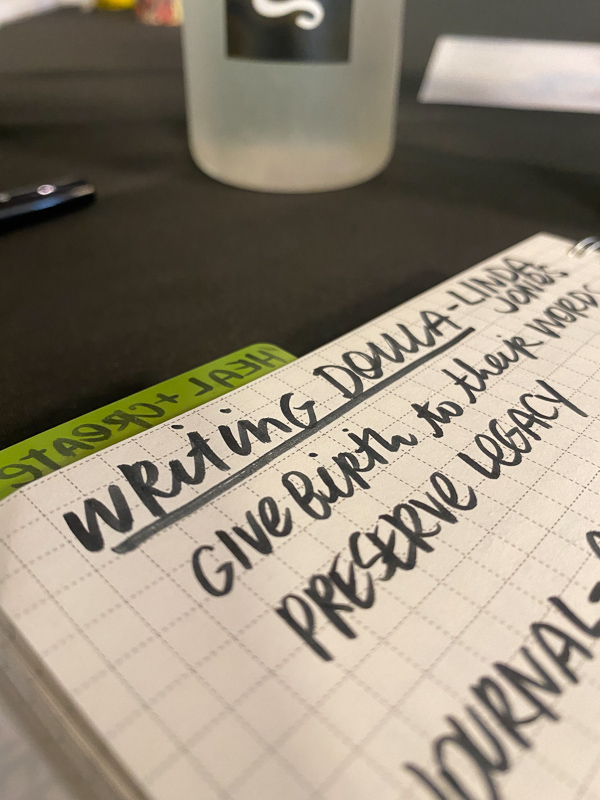 WRiting DOULA-LINDA
Jones
GIVE Birth to their WORDS
PRESERVE LEGACY
JOURNAL-
HEAL + CREATE